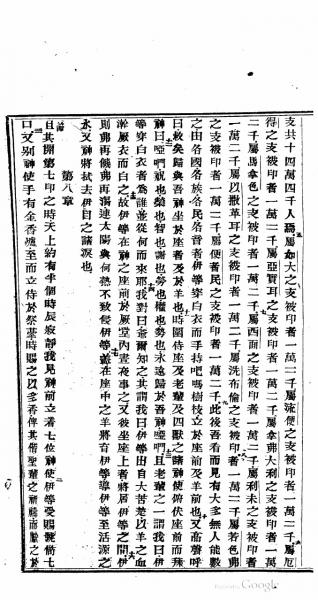 支共十四萬四千人屬如大之支被印者一萬二千屬流便之支被印者一萬二千屬厄
得之支被印者一萬二千屬亞實耳之支被印者一萬二千屬拿弗大利之支被印者一萬
二千屬馬拿色之支被印者一萬二千屬西面之支被印者一萬二千屬利未之支被印者
一萬二千屬以撒革耳之支被印者一萬二千屬洗布倫之支被印者一萬二千屬若色弗
之支被印者一萬二千屬便者民之支被印者一萬二千此後吾看而見有大多無人能數
之由各國各族各民各音者伊等穿白衣而手持吧嗎樹枝立於座前及羊前也又高聲呼
曰救矣歸與吾神坐於座者及於羊也時圍侍座及老輩及四獸之諸神使俯伏座前而拜
神曰啞們祝也榮也智也謝也勞也權也勢也永遠歸於吾神啞們且老輩之一謂我曰伊
等穿白衣者為誰並從何而來耶我對曰爺爾知之其謂我曰伊等出自大苦楚以羊之血
淅厥衣而白之故伊等在神之座前於厥堂內晝夜事之又彼坐座上者將居伊等之間伊
則弗再餓弗再渴連太陽與何熱不致侵伊等蓋在座中之羊將育伊等導伊等至活源之
水又神將拭去伊目之諸淚也
第八章
且其開第七印之時天上約有半個時辰寂靜我見神前立着七位神使伊等受賜號筒七
口又別神使手有金香爐至而立侍於祭薹時賜之以多香俾其偕聖輩之祈禱而獻之於
Google